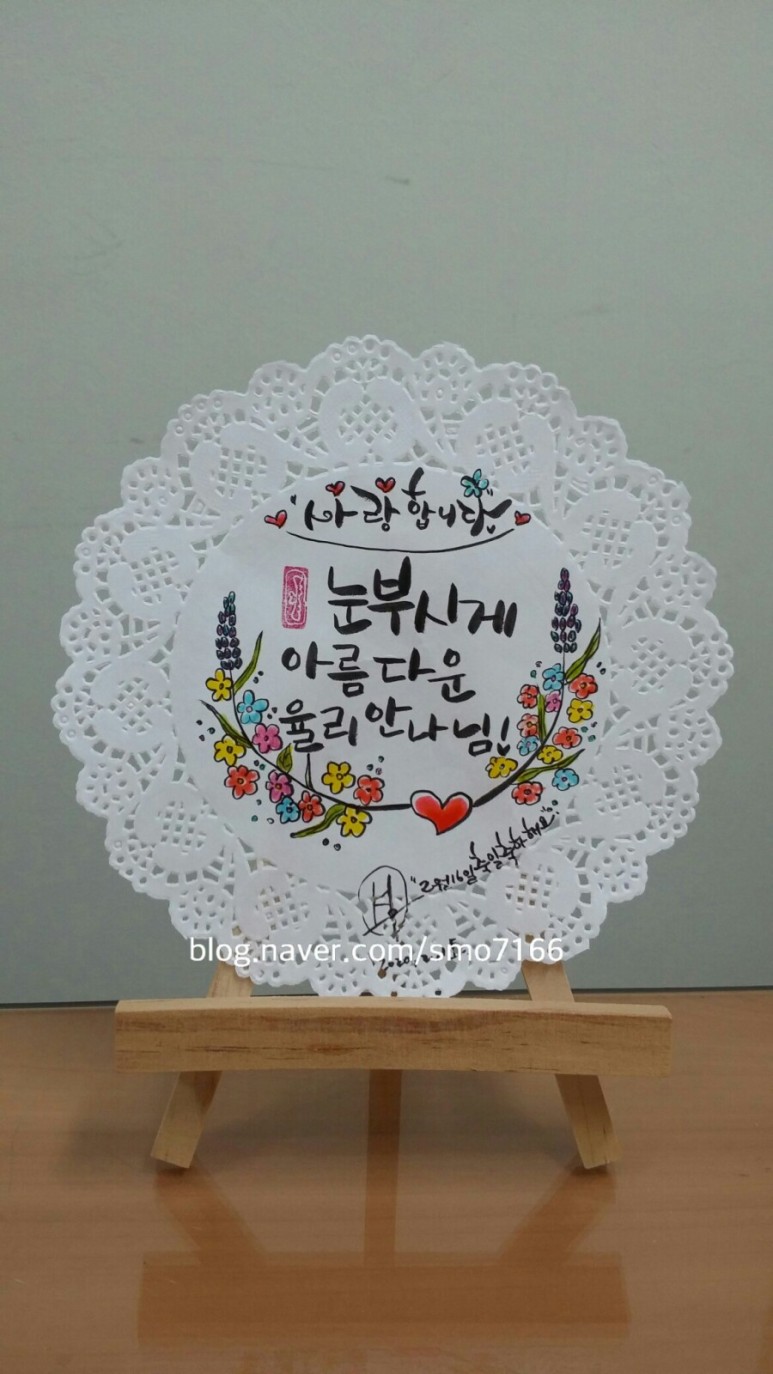 "사랑합니다"
눈부시게
아름다운
율리안나님!
"2월16일 축일 축하해요"
blog.naver.com/smo7166